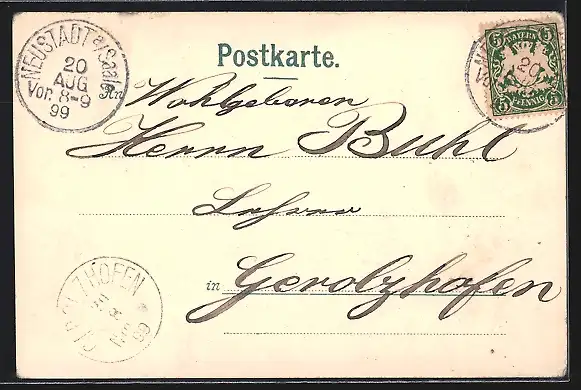 Postkarte.
NEUSTADT a/Saale
20
AUG
Vor. 8-9
99
BAYERN
5 5
20
PFENNIG
5 5
An
Wohlgeboren
Herrn Buhl
Lehrer
in Gerolzhofen
GEROLZHOFEN
99